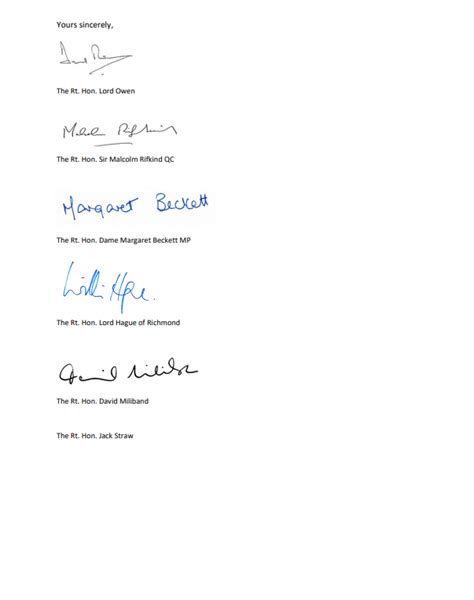 Yours sincerely,
The Rt. Hon. Lord Owen
The Rt. Hon. Sir Malcolm Rifkind QC
Margaret Beckett
The Rt. Hon. Dame Margaret Beckett MP
The Rt. Hon. Lord Hague of Richmond
David Miliband
The Rt. Hon. David Miliband
The Rt. Hon. Jack Straw